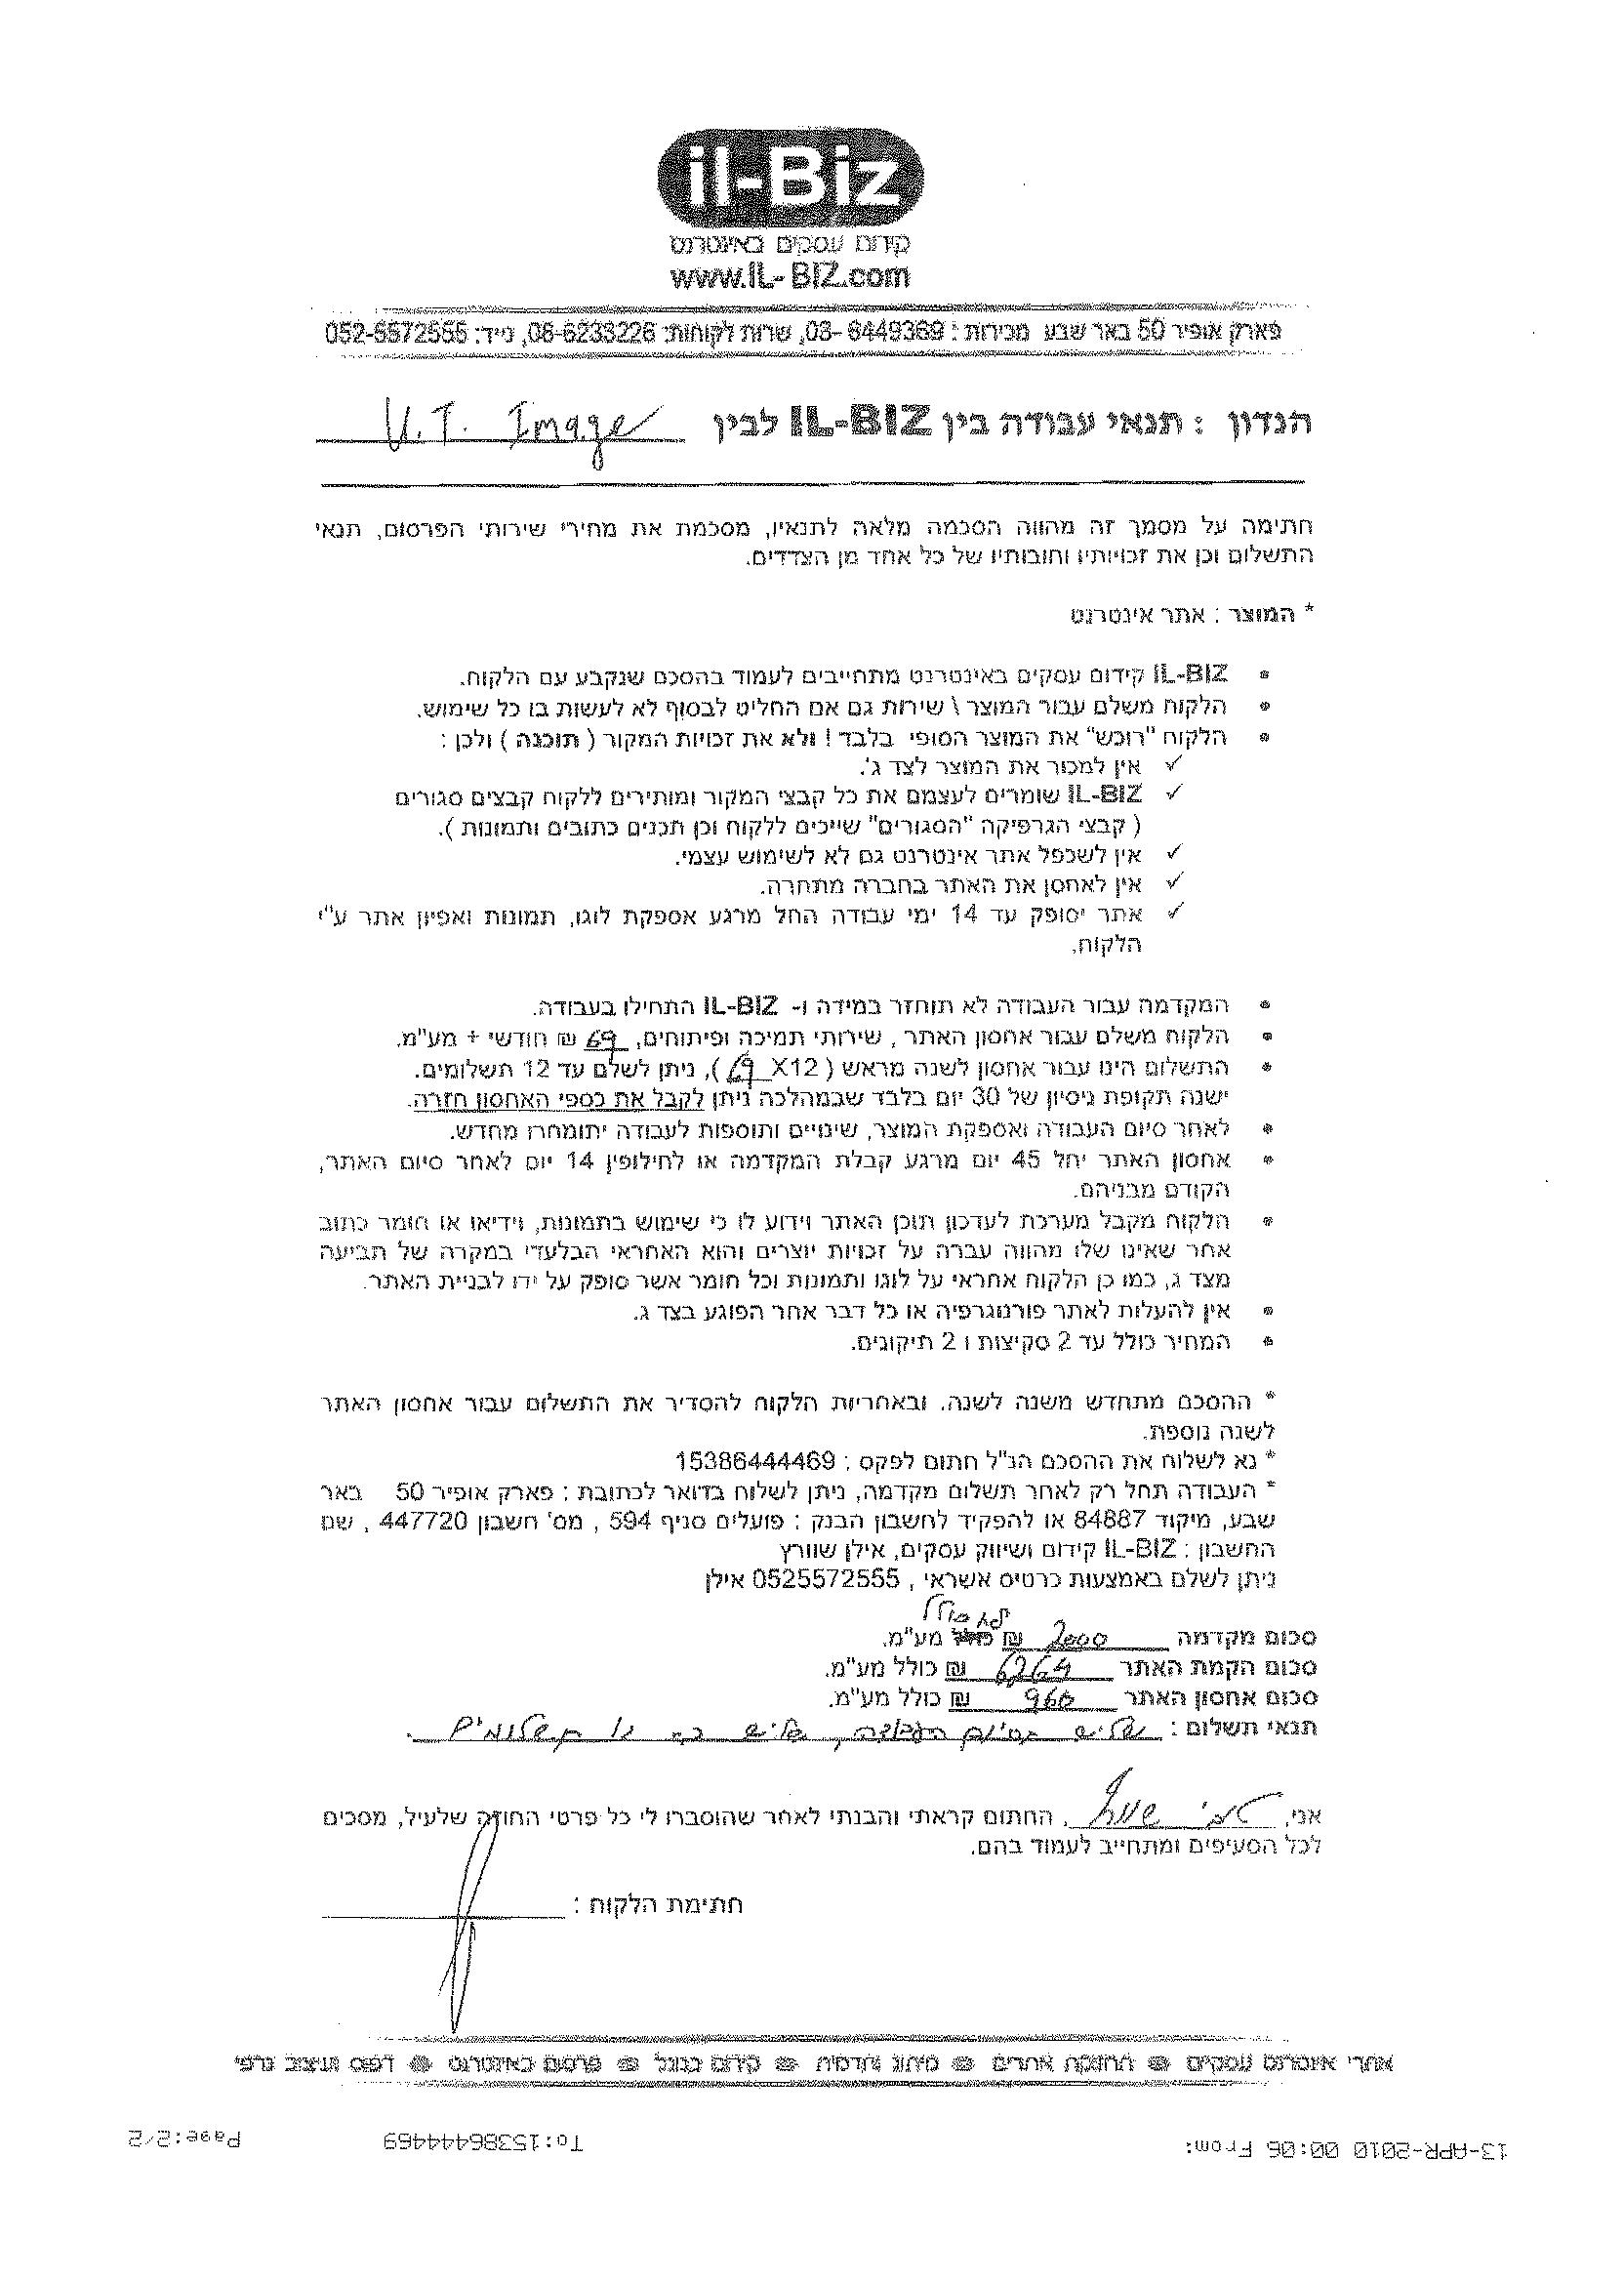 il-Biz
קידום עסקים באינטרנט
www.IL-BIZ.com
פארק אופיר 50 באר שבע מכירות : 08-6449369, שרות לקוחות: 08-6233226, נייד: 052-5572555
הנדון : תנאי עבודה בין IL-BIZ לבין U.T. Image
חתימה על מסמך זה מהווה הסכמה מלאה לתנאיו, מסכמת את מחירי שירותי הפרסום, תנאי
התשלום וכן את זכויותיו וחובותיו של כל אחד מן הצדדים.
* המוצר : אתר אינטרנט
• IL-BIZ קידום עסקים באינטרנט מתחייבים לעמוד בהסכם שנקבע עם הלקוח.
• הלקוח משלם עבור המוצר \ שירות גם אם החליט לבסוף לא לעשות בו כל שימוש.
• הלקוח "רוכש" את המוצר הסופי בלבד ! ולא את זכויות המקור ( תוכנה ) ולכן :
✓ אין למכור את המוצר לצד ג'.
✓ IL-BIZ שומרים לעצמם את כל קבצי המקור ומותירים ללקוח קבצים סגורים
( קבצי הגרפיקה "הסגורים" שייכים ללקוח וכן תכנים כתובים ותמונות ).
✓ אין לשכפל אתר אינטרנט גם לא לשימוש עצמי.
✓ אין לאחסן את האתר בחברה מתחרה.
✓ אתר יסופק עד 14 ימי עבודה החל מרגע אספקת לוגו, תמונות ואפיון אתר ע"י
הלקוח.
• המקדמה עבור העבודה לא תוחזר במידה ו- IL-BIZ התחילו בעבודה.
• הלקוח משלם עבור אחסון האתר , שירותי תמיכה ופיתוחים, 69 ₪ חודשי + מע"מ.
• התשלום הינו עבור אחסון לשנה מראש ( 69 X12 ), ניתן לשלם עד 12 תשלומים.
ישנה תקופת ניסיון של 30 יום בלבד שבמהלכה ניתן לקבל את כספי האחסון חזרה.
• לאחר סיום העבודה ואספקת המוצר, שינויים ותוספות לעבודה יתומחרו מחדש.
• אחסון האתר יחל 45 יום מרגע קבלת המקדמה או לחילופין 14 יום לאחר סיום האתר,
הקודם מבניהם.
• הלקוח מקבל מערכת לעדכון תוכן האתר וידוע לו כי שימוש בתמונות, וידיאו או חומר כתוב
אחר שאינו שלו מהווה עברה על זכויות יוצרים והוא האחראי הבלעדי במקרה של תביעה
מצד ג, כמו כן הלקוח אחראי על לוגו ותמונות וכל חומר אשר סופק על ידו לבניית האתר.
• אין להעלות לאתר פורנוגרפיה או כל דבר אחר הפוגע בצד ג.
• המחיר כולל עד 2 סקיצות ו 2 תיקונים.
* ההסכם מתחדש משנה לשנה. ובאחריות הלקוח להסדיר את התשלום עבור אחסון האתר
לשנה נוספת.
* נא לשלוח את ההסכם הנ"ל חתום לפקס : 15386444469
* העבודה תחל רק לאחר תשלום מקדמה, ניתן לשלוח בדואר לכתובת : פארק אופיר 50 באר
שבע, מיקוד 84887 או להפקיד לחשבון הבנק : פועלים סניף 594 , מס' חשבון 447720 , שם
החשבון : IL-BIZ קידום ושיווק עסקים, אילן שוורץ
ניתן לשלם באמצעות כרטיס אשראי , 0525572555 אילן
לא כולל
סכום מקדמה 2000 ₪ כולל מע"מ.
סכום הקמת האתר 6264 ₪ כולל מע"מ.
סכום אחסון האתר 960 ₪ כולל מע"מ.
תנאי תשלום : שליש בסיום העבודה, שליש בתשלומים .
אני, , החתום קראתי והבנתי לאחר שהוסברו לי כל פרטי החוזה שלעיל, מסכים
לכל הסעיפים ומתחייב לעמוד בהם.
חתימת הלקוח :
אתרי אינטרנט עסקיים תחזוקת אתרים מיתוג ותדמית קידום בגוגל פרסום באינטרנט דפוס ועיצוב גרפי
13-APR-2010 00:06 From: To:15386444469 Page:2/2